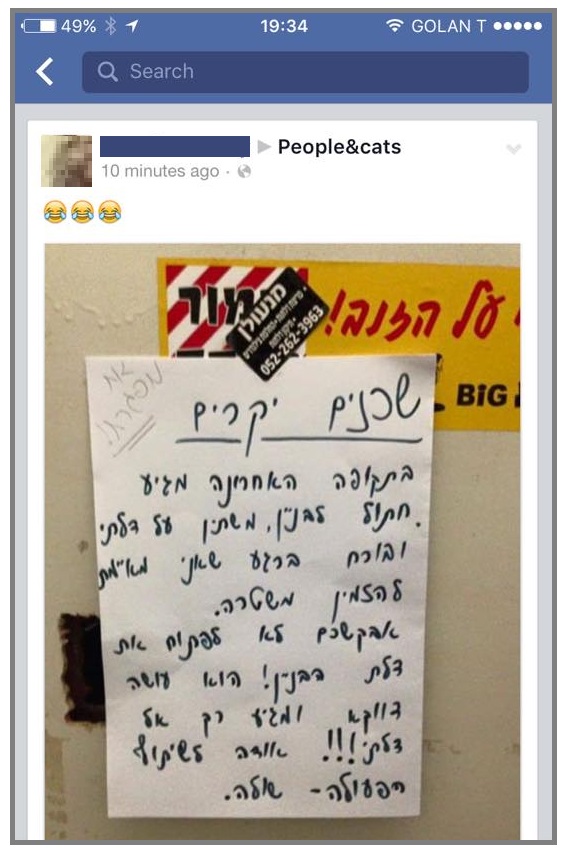 49%
19:34
GOLAN T
Search
People&cats
10 minutes ago
😂😂😂
על הזנב!
מנעולן
052-262-3963
BIG
את
מפגרת!
שכנים יקרים
בתקופה האחרונה מגיע
חתול לבניין, משתין על דלתי
ובורח ברגע שאני מאיימת
להזמין משטרה.
אבקשכם לא לפתוח את
דלת הבניין! הוא עושה
דווקא ומגיע רק אל
דלתי!!! אודה לשיתוף
הפעולה - שולה.